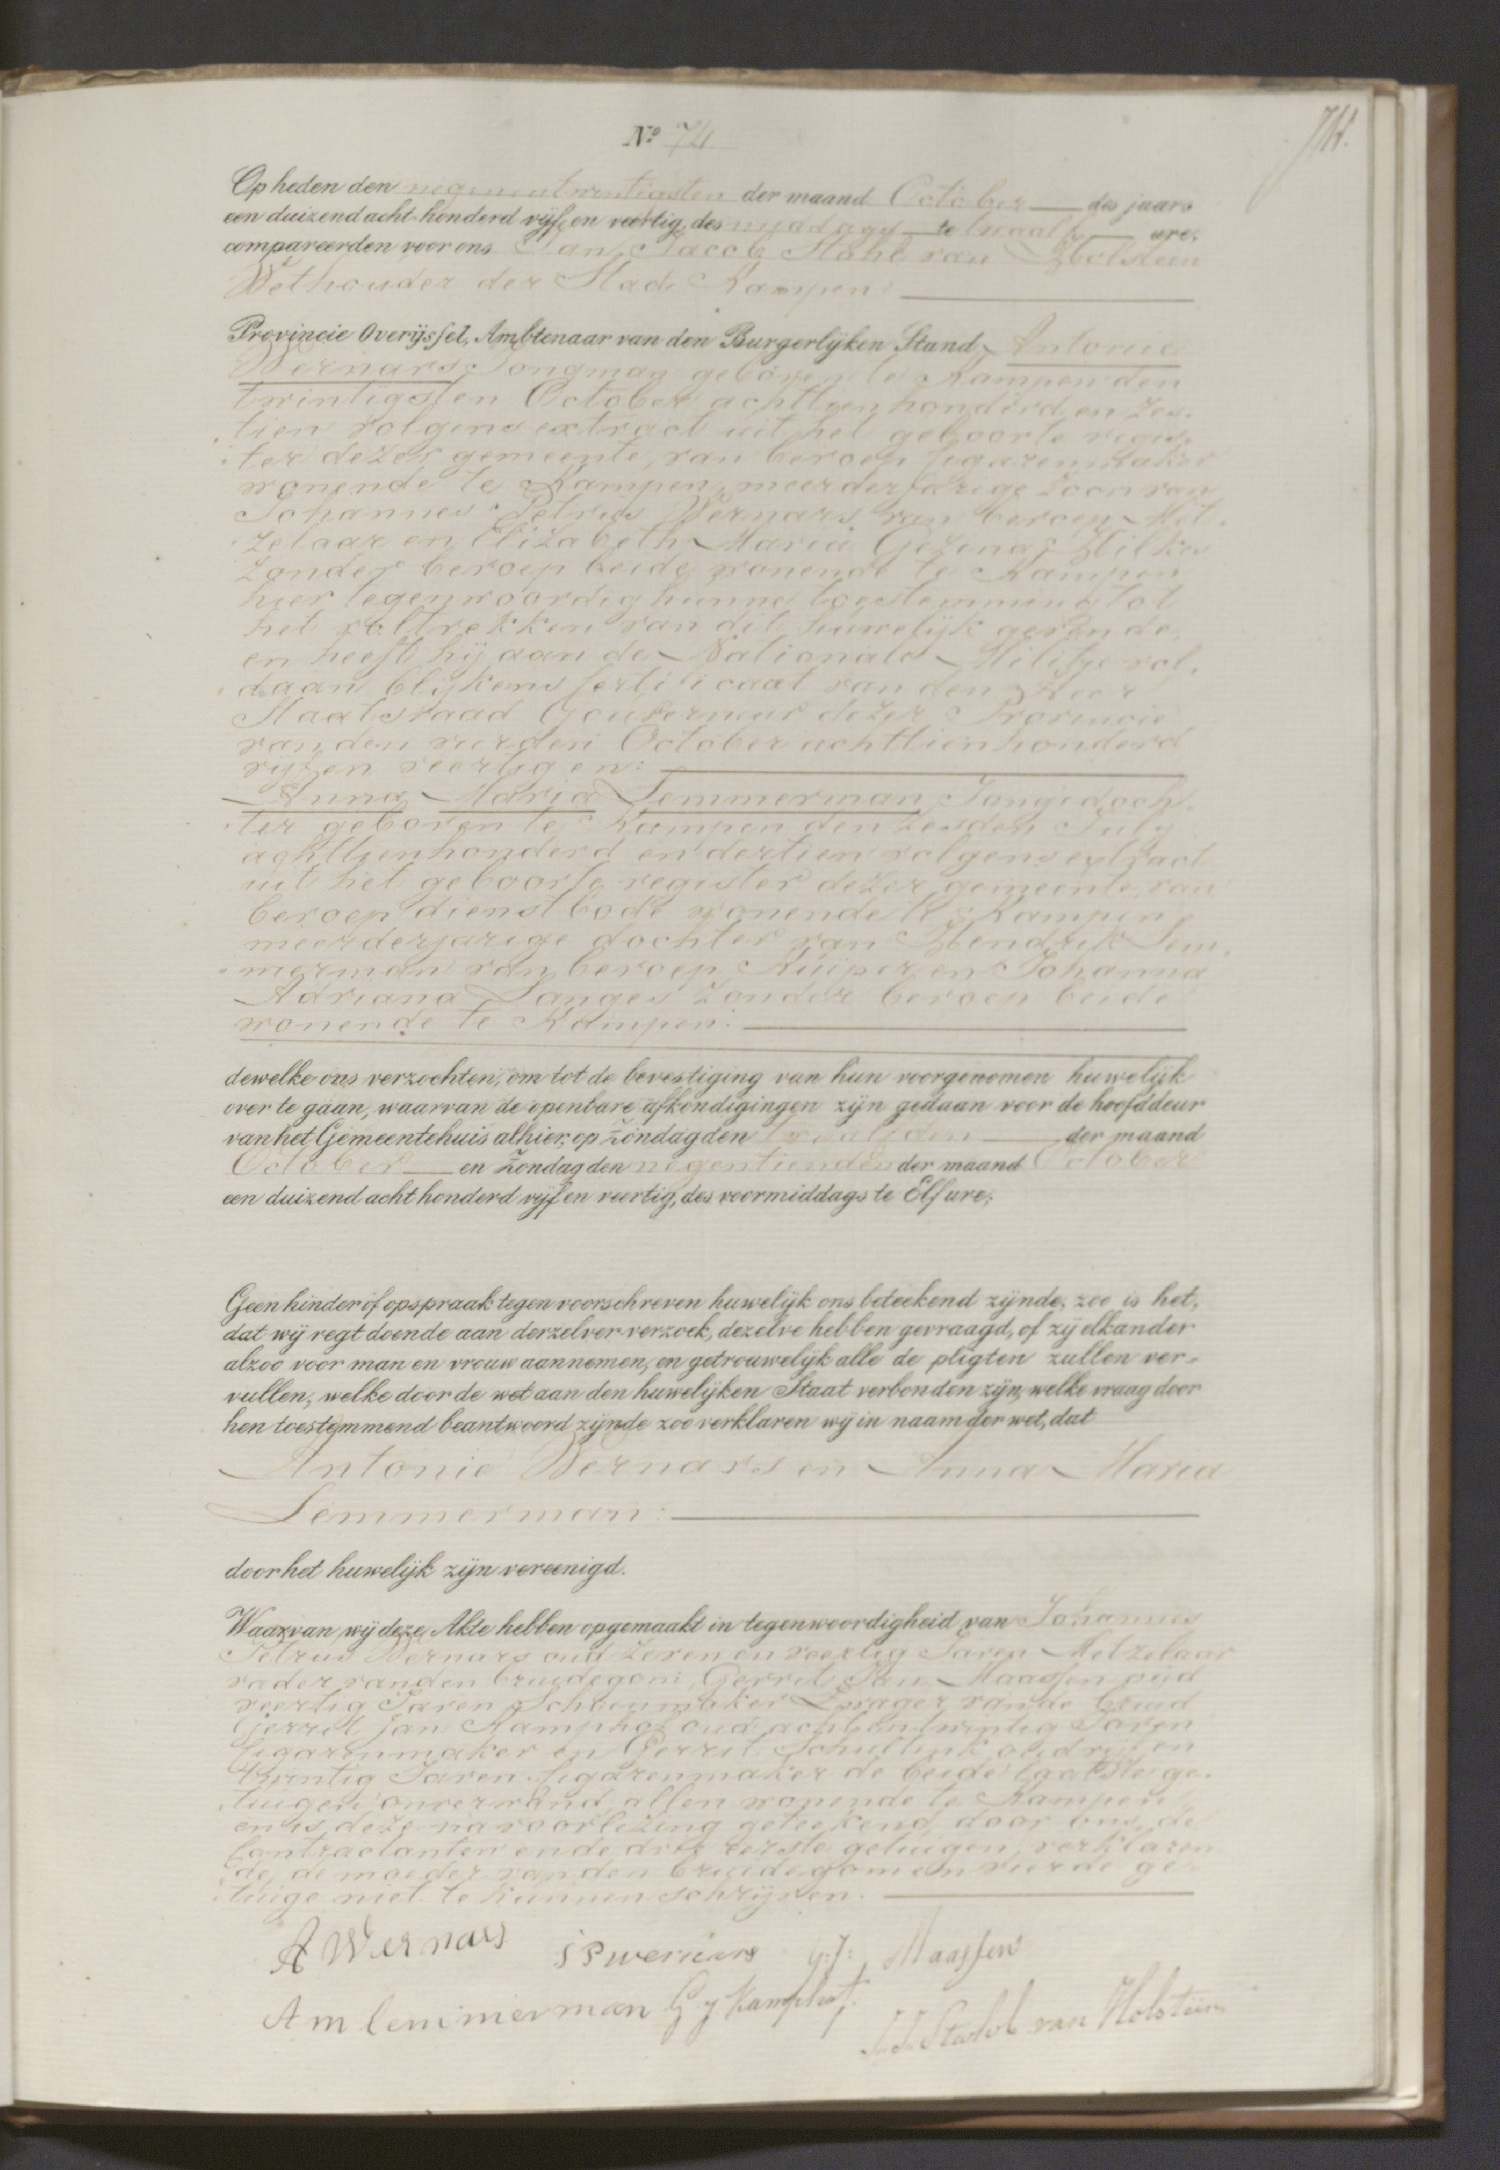 74.
No 74
Op heden den negenentwintigsten der maand October des jaars
een duizend acht honderd vijf en veertig, des middags te twaalf ure,
compareerden voor ons Jan Jacob Stahl van Holstein
Wethouder der Stad Kampen:
Provincie Overijssel, Ambtenaar van den Burgerlijken Stand, Antonie
Wernars, Jongman geboren te Kampen den
twintigsten October achttienhonderd en zes-
tien volgens extract uit het geboorte regis-
ter dezer gemeente, van beroep segarenmaker
wonende te Kampen, meerderjarige zoon van
Johannes Petrus Wernars van beroep Met-
zelaar en Elizabeth Maria Gezena Hilkes
zonder beroep beide wonende te Kampen
hier tegenwoordig hunne toestemming tot
het voltrekken van dit huwelijk gevende,
en heeft hij aan de Nationale Militie vol-
daan blijkens sertificaat van den Heer
Staatsraad Gouverneur dezer Provincie
van den vierden October achttienhonderd
vijf en veertig en:
Anna Maria Lemmerman Jonge doch-
ter geboren te Kampen den zesden July
achttienhonderd en dertien volgens extract
uit het geboorte register dezer gemeente, van
beroep dienstbode wonende te Kampen,
meerderjarige dochter van Hendrik Lem-
merman van beroep Kuiper en Johanna
Adriana Langes zonder beroep beide
wonende te Kampen:
dewelke ons verzochten, om tot de bevestiging van hun voorgenomen huwelijk
over te gaan, waarvan de openbare afkondigingen zijn gedaan voor de hoofddeur
van het Gemeentehuis alhier, op Zondag den twaalfden der maand
October en Zondag den negentienden der maand October
een duizend acht honderd vijf en veertig, des voormiddags te Elf ure;
Geen hinder of opspraak tegen voorschreven huwelijk ons beteekend zijnde, zoo is het,
dat wij regt doende aan derzelver verzoek, dezelve hebben gevraagd, of zij elkander
alzoo voor man en vrouw aannemen, en getrouwelijk alle de pligten zullen ver-
vullen, welke door de wet aan den huwelijken Staat verbonden zijn, welke vraag door
hen toestemmend beantwoord zijnde zoo verklaren wij in naam der wet, dat
Antonie Wernars en Anna Maria
Lemmerman:
door het huwelijk zijn vereenigd.
Waarvan wij deze Akte hebben opgemaakt in tegenwoordigheid van Johannes
Petrus Wernars oud zeven en veertig Jaren Metzelaar
vader van den bruidegom, Gerrit Jan Maassen oud
veertig Jaren Schoenmaker Zwager van de bruid
Gerrit Jan Kamphof oud achtentwintig Jaren
segarenmaker en Gerrit Schultink oud vijf en
twintig Jaren segarenmaker de beide laatste ge-
tuigen onverwand allen wonende te Kampen,
en is deze na voorlezing geteekend door ons, de
Contractanten en de drie eerste getuigen, verklaren-
de, de moeder van den bruidegom en vierde ge-
tuige niet te kunnen schrijven.
A Wernars J P wernars G: J: Maassen
A m lemmerman G J Kamphof.
J. J. Stahl van Holstein